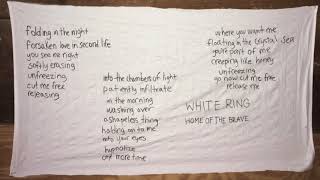 folding in the night
forsaken love in second life
you see me right
softly erasing
unfreezing
cut me free
releasing
into the chambers of light
patently infiltrate
in the morning
washing over
a shapeless thing
holding on to me
into your eyes
hypnotize
one more time
where you want me
floating in the crystal sea
you're part of me
creeping like honey
unfreezing
go now cut me free
release me
WHITE RING
HOME OF THE BRAVE